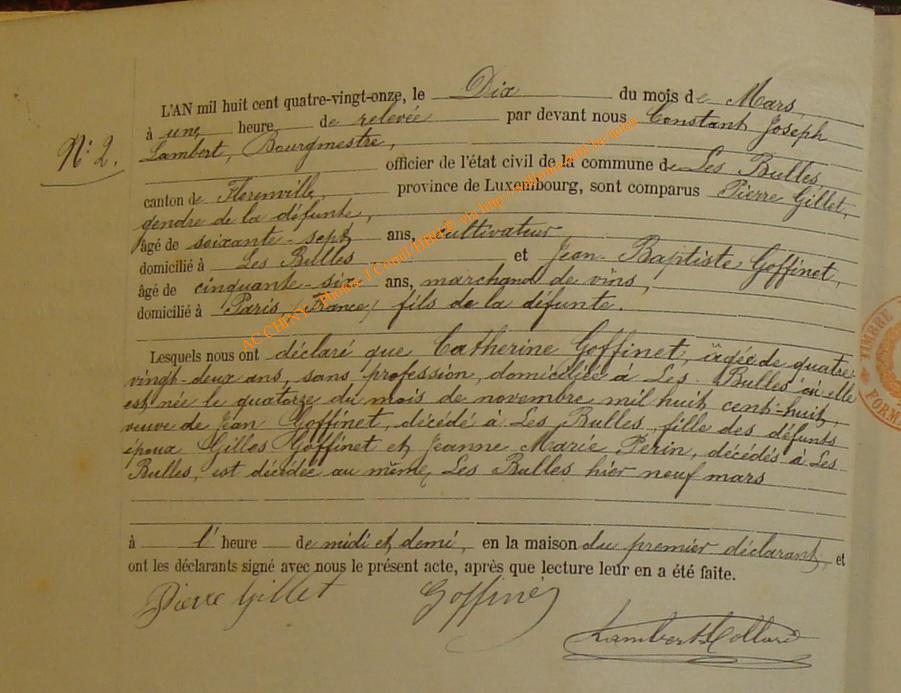 L'AN mil huit cent quatre-vingt-onze, le Dix du mois de Mars,
à une heure de relevée par devant nous Constant Joseph
N° 2.
Lambert, Bourgmestre,
officier de l'état civil de la commune de Les Bulles,
canton de Florenville, province de Luxembourg, sont comparus Pierre Gillet,
gendre de la défunte,
âgé de soixante-sept ans, cultivateur
domicilié à Les Bulles et Jean-Baptiste Goffinet,
âgé de cinquante-six ans, marchand de vins,
domicilié à Paris (France) fils de la défunte.
Lesquels nous ont déclaré que Catherine Goffinet, âgée de quatre-
vingt-deux ans, sans profession, domiciliée à Les Bulles où elle
est née le quatorze du mois de novembre mil huit cent-huit,
veuve de Jean Goffinet, décédé à Les Bulles, fille des défunts
époux Gilles Goffinet et Jeanne Marie Perin, décédés à Les
Bulles, est décédée au même Les Bulles hier neuf mars
à l' heure de midi et demi, en la maison du premier déclarant, et
ont les déclarants signé avec nous le présent acte, après que lecture leur en a été faite.
Pierre Gillet Goffinet
Lambert Collard
AC CHINY - Photos J.Cornil/MHLG via http://
TIMBRE
FORM